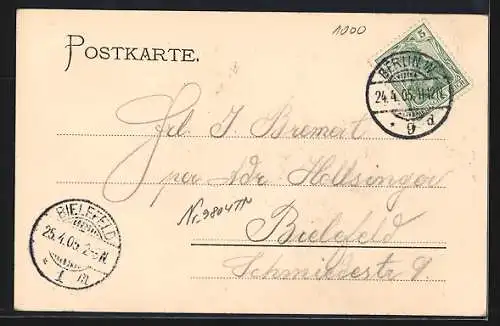 1000
POSTKARTE.
5
BERLIN W.
24.4.05.11-12N.
* 9 d
Frl. J. Bremert
per Adr. Helsinger
Nr. 9804 TN
Bielefeld
Schmiedestr 9.
BIELEFELD
25.4.05.2-3N.
* 1 m